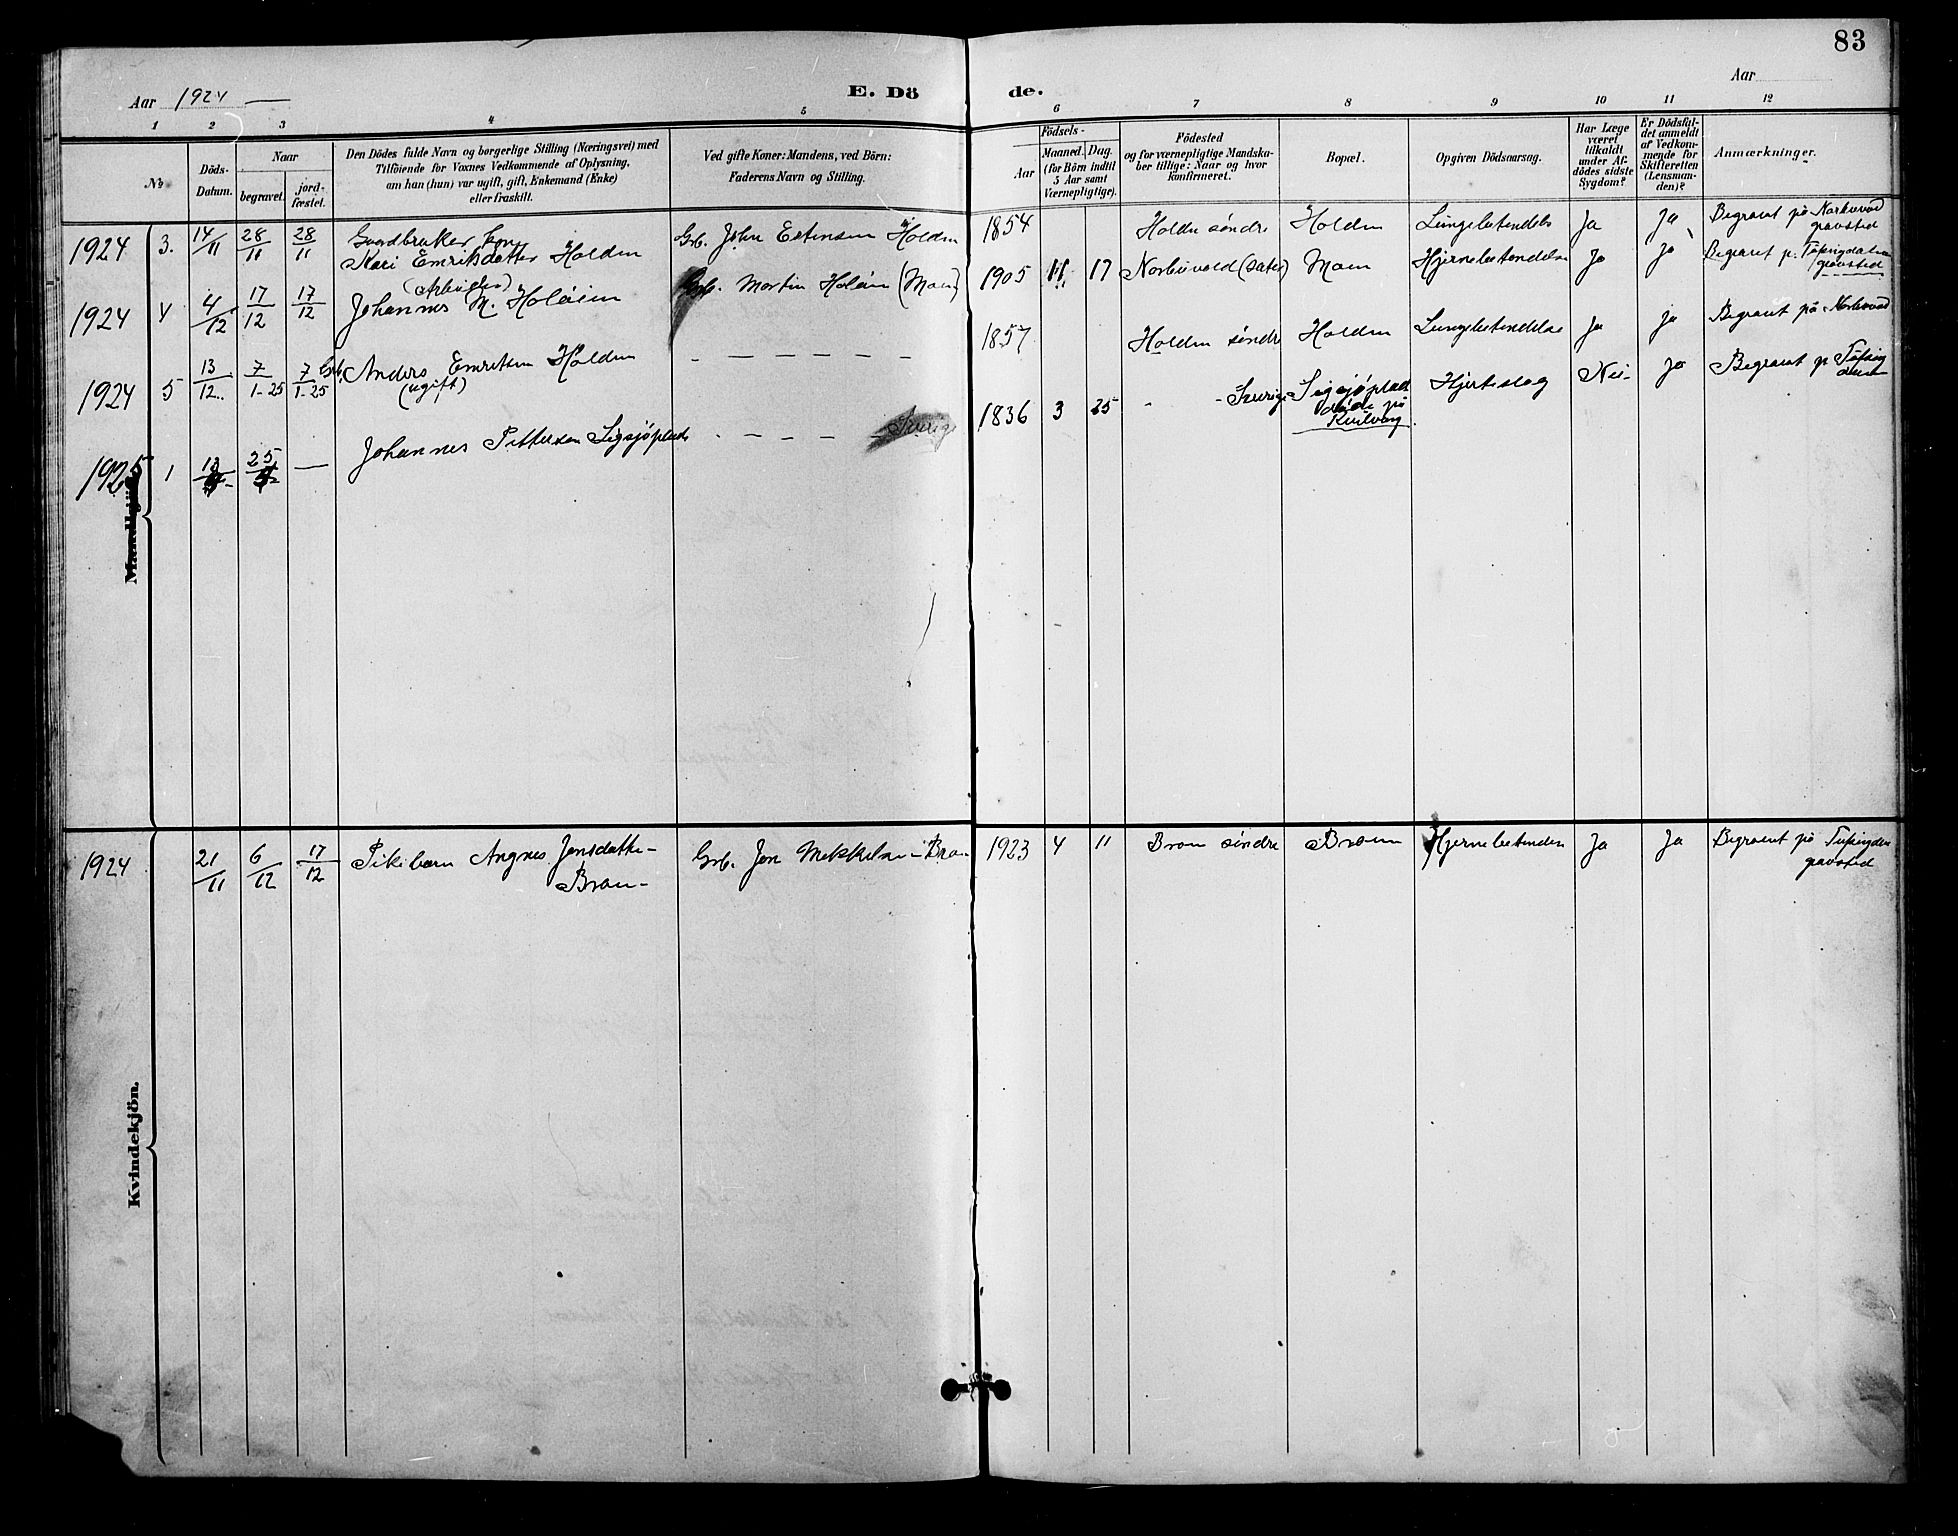 83
Aar 1924 —
E. Dö
de.
Aar
1 2 3 4 5
6 7 8 9 10 11 12
№
Döds-
Datum.
Naar
begravet.
jord-
fæstet.
Den Dödes fulde Navn og borgerlige Stilling (Næringsvei) med
Tilföiende for Voxnes Vedkommende af Oplysning,
om han (hun) var ugift, gift, Enkemand (Enke)
eller fraskilt.
Ved gifte Koner: Mandens, ved Börn:
Faderens Navn og Stilling.
Födsels-
Aar
Maaned.
Dag.
(for Börn indtil
5 Aar samt
Værnepligtige).
Födested
og for værnepligtige Mandska-
ber tillige: Naar og hvor
konfirmeret.
Bopæl.
Opgiven Dödsaarsag.
Har Læge
været
tilkaldt
under Af-
dödes sidste
Sygdom?
Er Dödsfal-
det anmeldt
af Vedkom-
mende for
Skifteretten
(Lensman-
den)?
Anmærkninger.
Mandkjön.
1924 3. 14/11 28/11 28/11 Gaardbruker kone
Kari Emriksdatter Holden
Grb. John Estensen Holden
1854 Holden søndre Holden Lungebetendels Ja Ja Begravet på Norkvold
gravsted
1924 4 4/12 17/12 17/12 (Arbeider)
Johannes M. Holøien
Grb. Martin Holøien (Moen)
1905 11 17 Norkvold (sater) Moen Hjernebetendelse Ja Ja Begravet p. Tufsingdalens
gravsted
1924 5 13/12 7/1-25 7/1-25 Grb. Anders Emriksen Holden
(ugift)
— — — — — —
1857 Holden søndre Holden Lungebetendelse Ja Ja Begravet på Norkvold
1925 1 13 25 — Johannes Pettersen Sigsjøplads
- — — — — Sverige
1836 3 25 - - Sverige Sigsjøplads
døde på
Kvilvang
Hjerteslag Nei- Ja Begravet p Tufsing
dalen
Kvindekjön.
1924 21/11 6/12 17/12 Pikebarn Angnes Jonsdatter-
Broen-
Grb. Jon Mekkelsen Broen
1923 4 11 Broen søndre Broen Hjernebetenden Ja Ja Begravet på Tufsingdens
gravsted